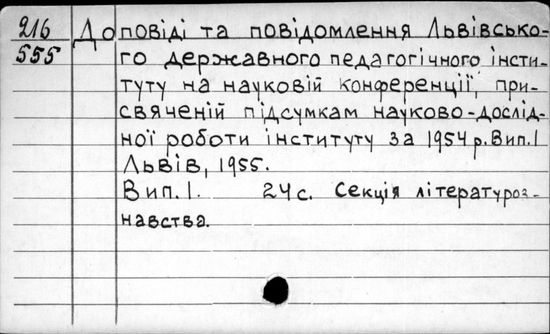 216
555
Доповіді та повідомлення Львівсько-
го державного педагогічного інсти-
туту на науковій конференції, при-
свяченій підсумкам науково-дослід-
ної роботи інституту за 1954 р. Вип. 1
Львів, 1955.
Вип. 1. 24 с. Секція літературоз-
навства.